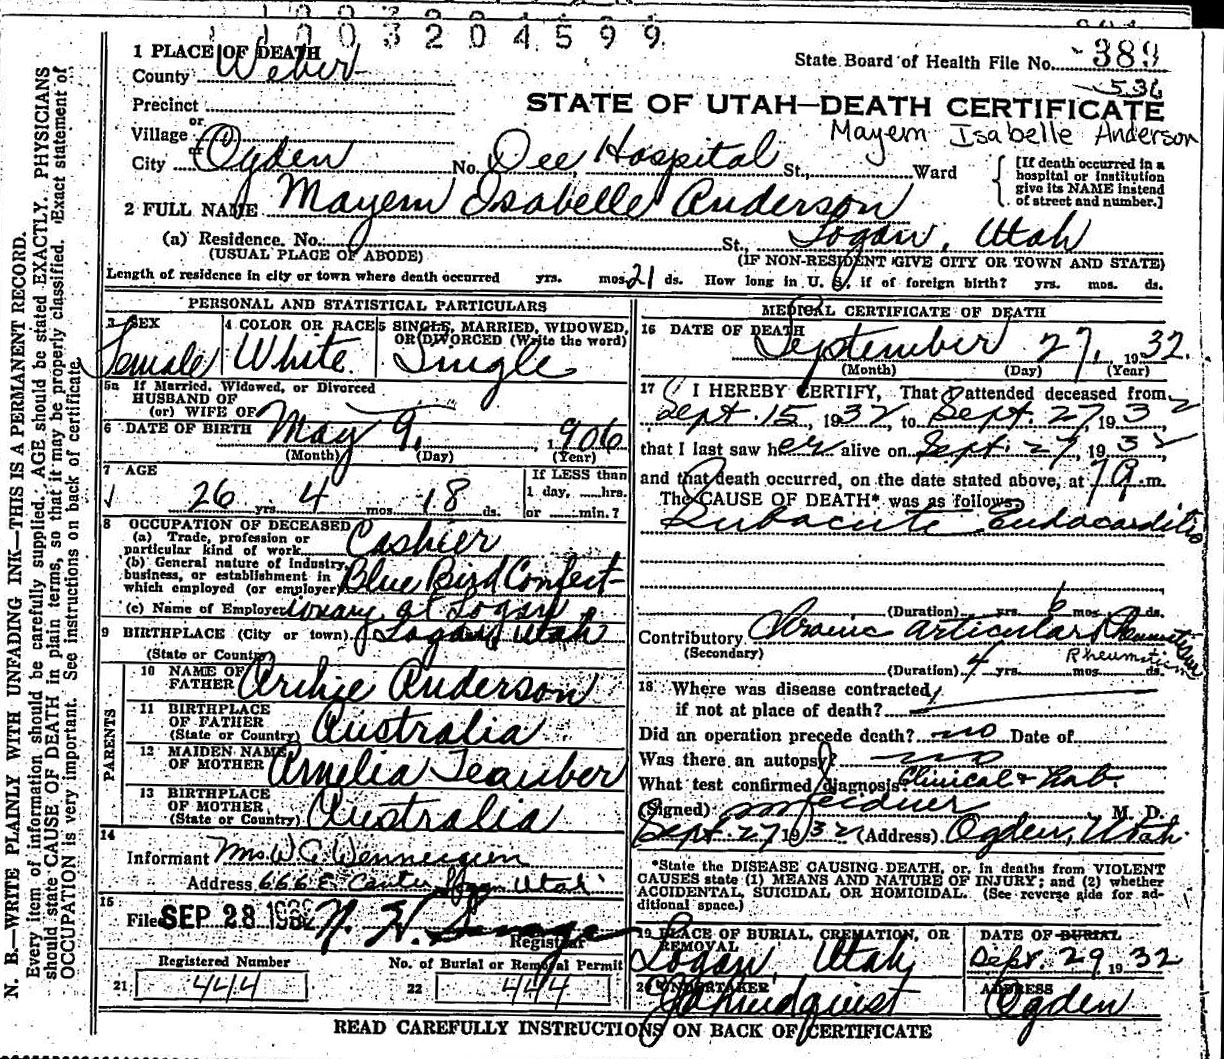 1 0 0 3 2 0 4 5 9 9
1 PLACE OF DEATH
County Weber
State Board of Health File No. 389
536
Precinct
or
Village
STATE OF UTAH—DEATH CERTIFICATE
Mayem Isabelle Anderson
or
City Ogden No. Dee Hospital St., Ward
[If death occurred in a hospital or institution give its NAME instead of street and number.]
2 FULL NAME Mayem Isabelle Anderson
(a) Residence. No. St., Logan, Utah
(USUAL PLACE OF ABODE) (IF NON-RESIDENT GIVE CITY OR TOWN AND STATE)
Length of residence in city or town where death occurred yrs. mos. 21 ds. How long in U. S. if of foreign birth? yrs. mos. ds.
PERSONAL AND STATISTICAL PARTICULARS
3 SEX
Female
4 COLOR OR RACE
White
5 SINGLE, MARRIED, WIDOWED, OR DIVORCED (Write the word)
Single
5a If Married, Widowed, or Divorced
HUSBAND OF
(or) WIFE OF
6 DATE OF BIRTH May 9, 1906
(Month) (Day) (Year)
7 AGE
26 yrs. 4 mos. 18 ds.
If LESS than
1 day, hrs.
or min.?
8 OCCUPATION OF DECEASED
(a) Trade, profession or
particular kind of work Cashier
(b) General nature of industry,
business, or establishment in
which employed (or employer) Blue Bird Confect-
(c) Name of Employer ionary at Logan
9 BIRTHPLACE (City or town) Logan, Utah
(State or Country)
PARENTS
10 NAME OF
FATHER Archie Anderson
11 BIRTHPLACE
OF FATHER
(State or Country) Australia
12 MAIDEN NAME
OF MOTHER Amelia Teauber
13 BIRTHPLACE
OF MOTHER
(State or Country) Australia
14
Informant Mrs W G
Address 666 E Center Logan Utah
15
Filed SEP 28 1932 N. H. Savage
Registrar
Registered Number No. of Burial or Removal Permit
21 444 22 444
MEDICAL CERTIFICATE OF DEATH
16 DATE OF DEATH
September 27, 1932.
(Month) (Day) (Year)
17 I HEREBY CERTIFY, That I attended deceased from
Sept. 15, 1932, to Sept. 27, 1932,
that I last saw her alive on Sept. 27, 1932
and that death occurred, on the date stated above, at 7 A.m.
The CAUSE OF DEATH* was as follows:
Subacute Endocarditis
(Duration) yrs. 6 mos. ds.
Contributory Chronic articular Rheumatism
(Secondary)
Rheumatism
(Duration) 4 yrs. mos. ds.
18 Where was disease contracted,
if not at place of death?
Did an operation precede death? no Date of
Was there an autopsy? no
What test confirmed diagnosis? Clinical & Lab.
(Signed) M. D.
Sept. 27 1932 (Address) Ogden, Utah.
*State the DISEASE CAUSING DEATH, or, in deaths from VIOLENT
CAUSES state (1) MEANS AND NATURE OF INJURY; and (2) whether
ACCIDENTAL SUICIDAL OR HOMICIDAL. (See reverse side for ad-
ditional space.)
19 PLACE OF BURIAL, CREMATION, OR
REMOVAL
Logan, Utah
DATE OF BURIAL
Sept. 29 1932
20 UNDERTAKER
Lindquist
ADDRESS
Ogden
READ CAREFULLY INSTRUCTIONS ON BACK OF CERTIFICATE
N. B.—WRITE PLAINLY WITH UNFADING INK—THIS IS A PERMANENT RECORD.
Every item of information should be carefully supplied. AGE should be stated EXACTLY. PHYSICIANS
should state CAUSE OF DEATH in plain terms, so that it may be properly classified. Exact statement of
OCCUPATION is very important. See instructions on back of certificate.